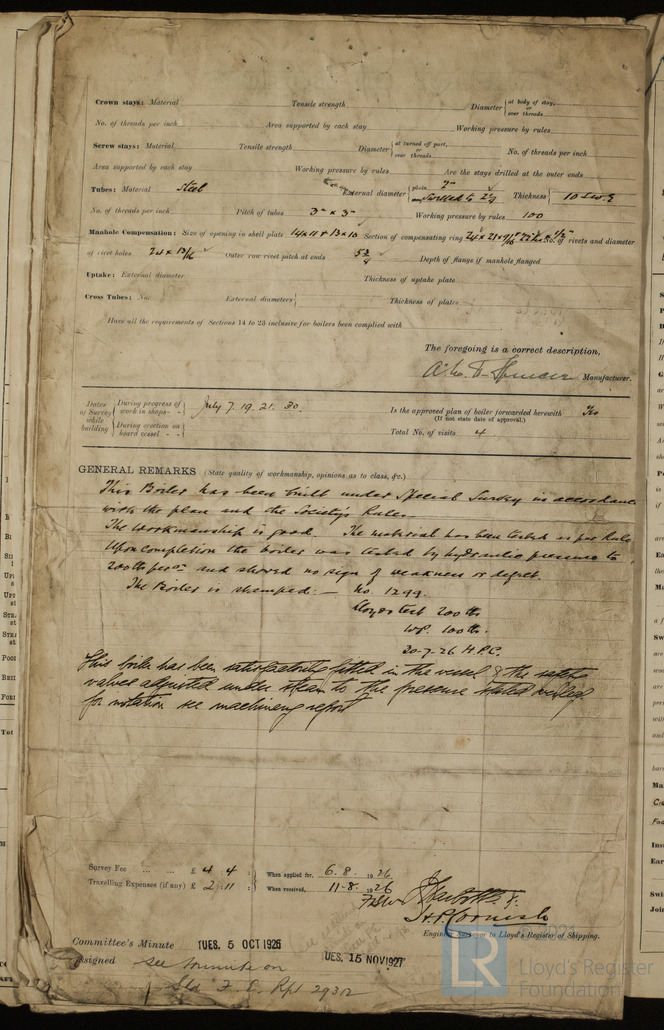 Crown stays: Material Tensile strength Diameter { at body of stay, or over threads
No. of threads per inch Area supported by each stay Working pressure by rules
Screw stays: Material Tensile strength Diameter { at turned off part, or over threads No. of threads per inch
Area supported by each stay Working pressure by rules Are the stays drilled at the outer ends
Tubes: Material Steel External diameter { plain 2" Thickness { 10 L.S.G
No. of threads per inch Pitch of tubes 3" x 3" Working pressure by rules 100
Manhole Compensation: Size of opening in shell plate 14x11 & 13x10 Section of compensating ring No. of rivets and diameter
of rivet holes 24 x 13/16 Outer row rivet pitch at ends 5 3/4 Depth of flange if manhole flanged
Uptake: External diameter Thickness of uptake plate
Cross Tubes: No. External diameters { Thickness of plates
Have all the requirements of Sections 14 to 23 inclusive for boilers been complied with
The foregoing is a correct description,
Spencer Manufacturer.
Dates of Survey while building { During progress of work in shops - - July 7. 19. 21. 30. Is the approved plan of boiler forwarded herewith Yes
(If not state date of approval.)
During erection on board vessel - - Total No. of visits 4
GENERAL REMARKS (State quality of workmanship, opinions as to class, &c.)
This Boiler has been built under Special Survey in accordance
with the plan and the Society's Rules.
The workmanship is good. The material has been tested as per Rule
Upon completion the boiler was tested by hydraulic pressure to
200 lbs per and showed no sign of weakness or defect.
The Boiler is stamped:— No. 1299.
Lloyds test 200 lbs
WP. 100 lbs.
30-7-26 H.P.C.
This boiler has been satisfactorily fitted in the vessel & the safety
valves adjusted under steam to the pressure stated
for notation see machinery report
Survey Fee ... ... £ 4 : 4 : When applied for. 6. 8. 1926
Travelling Expenses (if any) £ 2 : 11 : When received, 11-8. 1926
H.P. Cornish
Engineer Surveyor to Lloyd's Register of Shipping.
Committee's Minute TUES. 5 OCT 1926 TUES. 15 NOV 1927
Assigned See minute on
F. E. Rpt 29312
© 2021
LR Lloyd's Register
Foundation